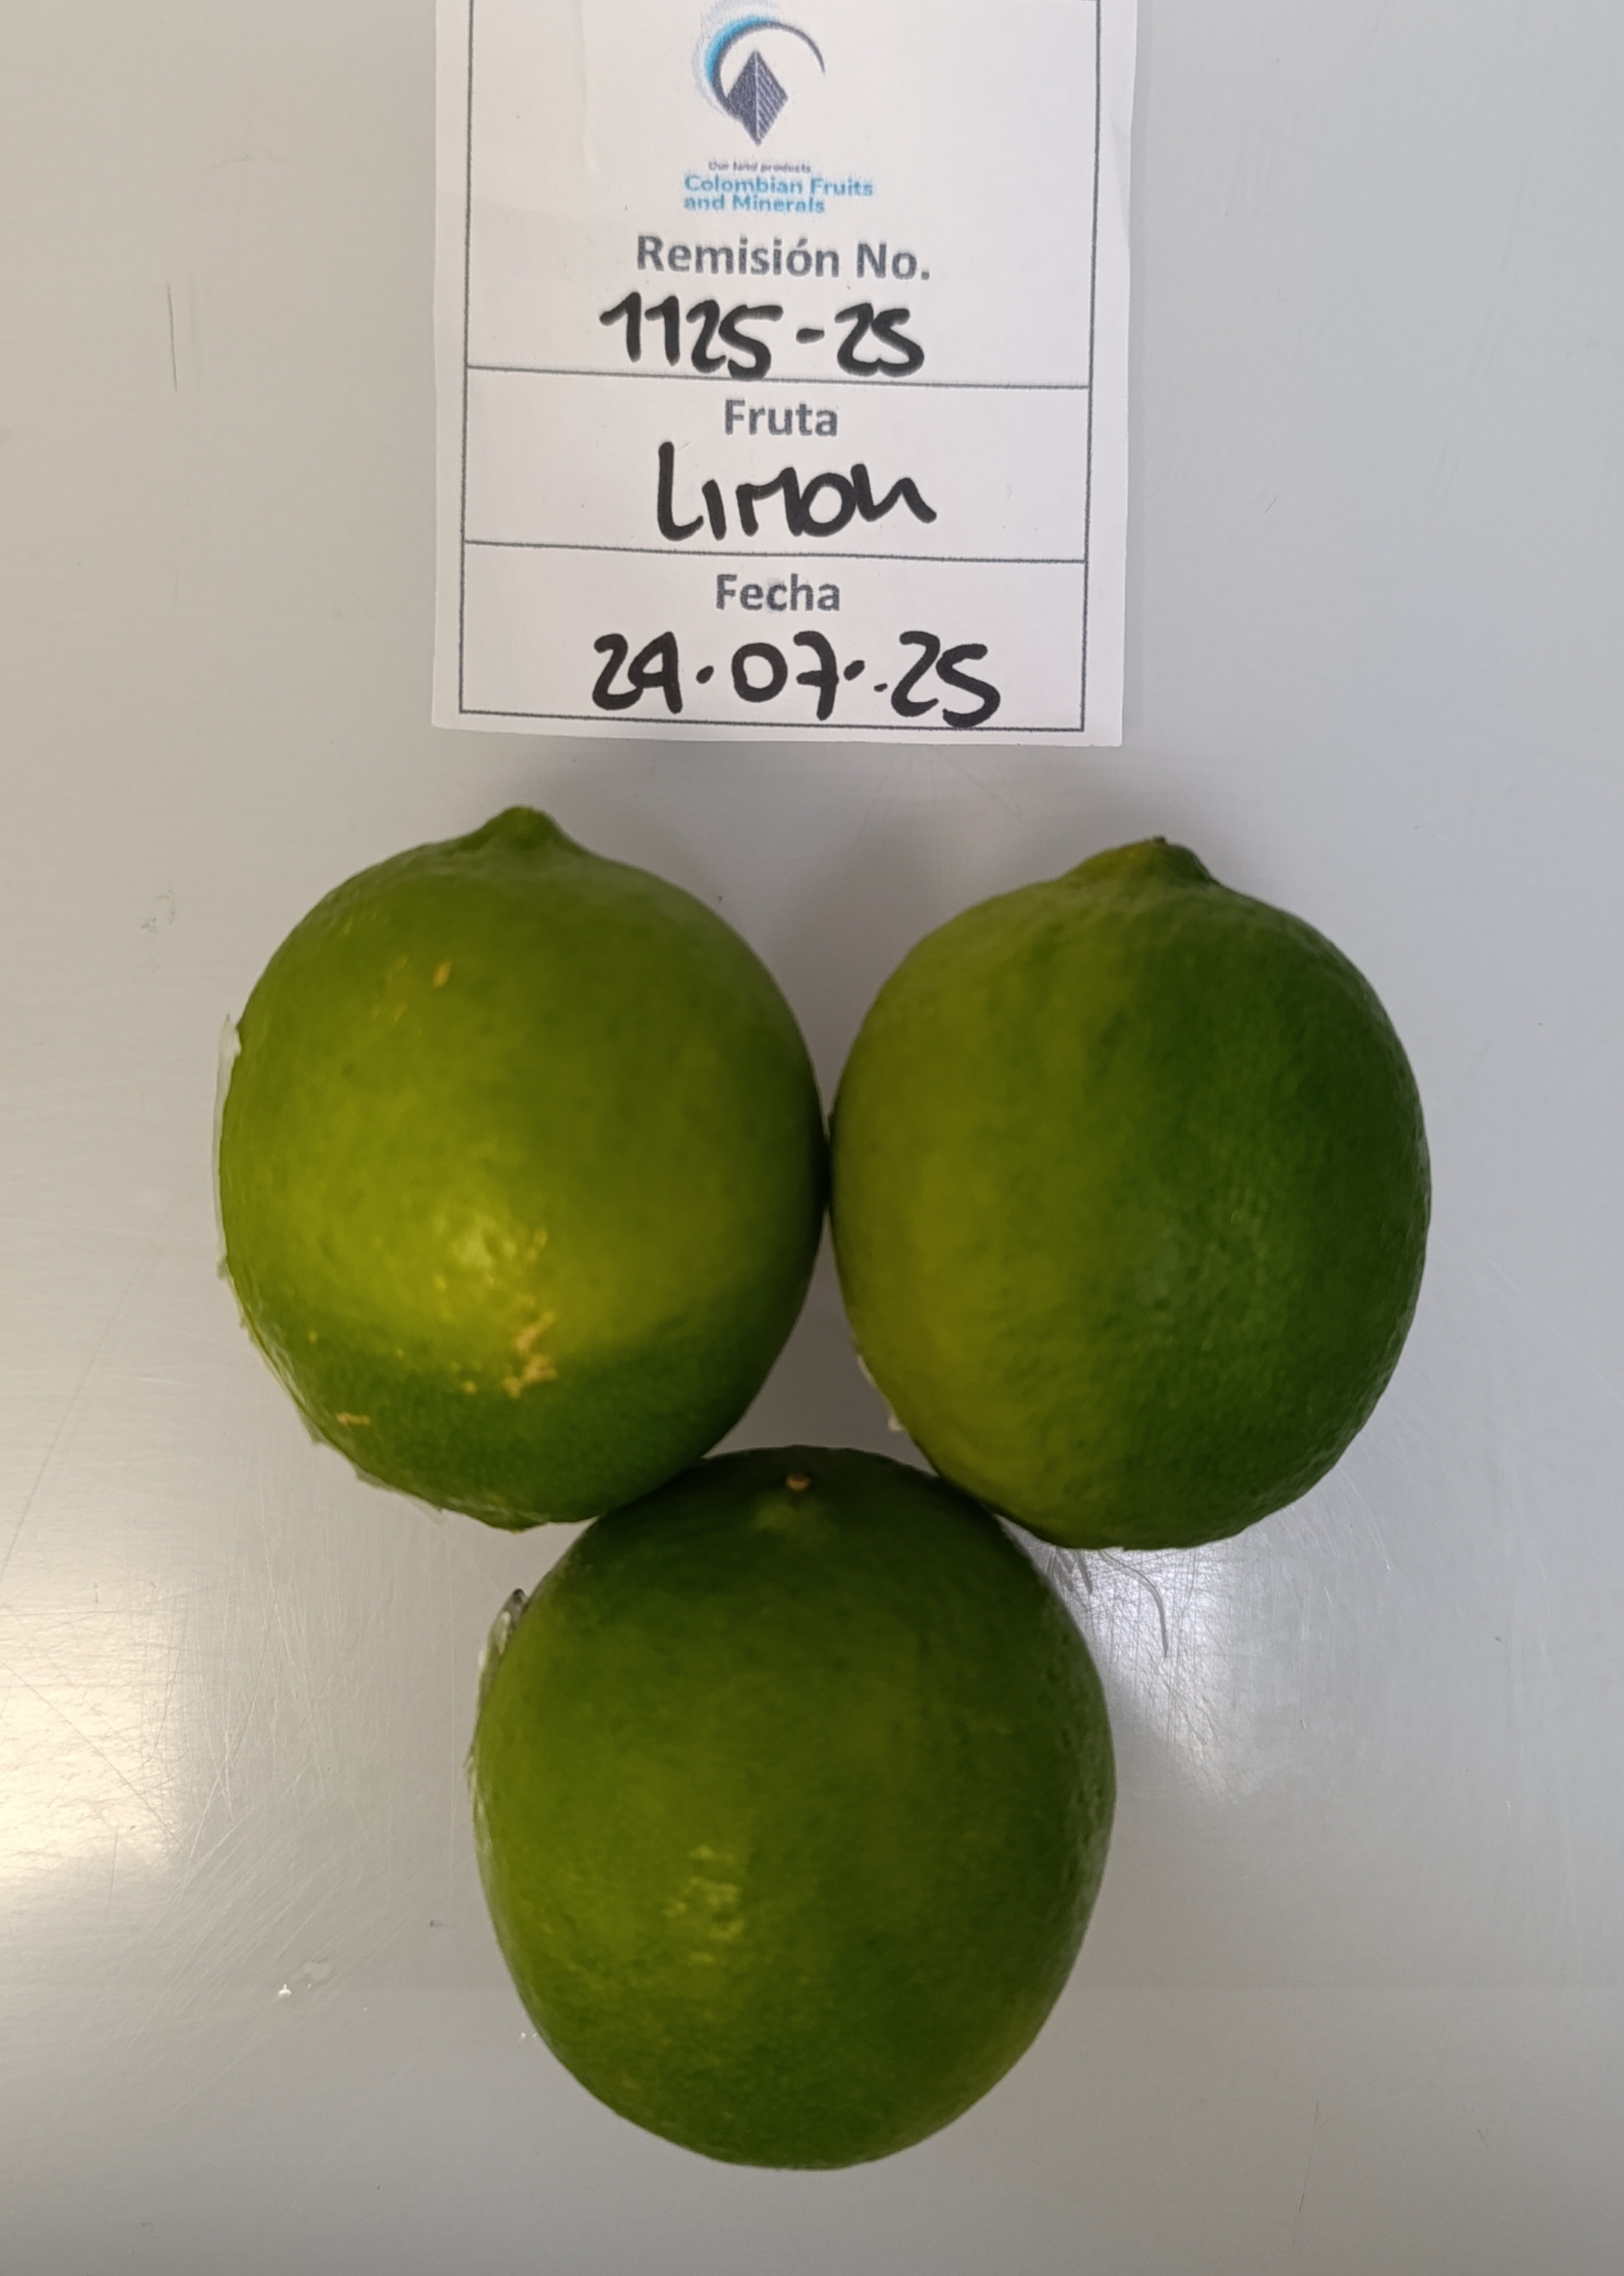 Our land products
Colombian Fruits
and Minerals
Remisión No.
1125-25
Fruta
Limon
Fecha
29.07.25